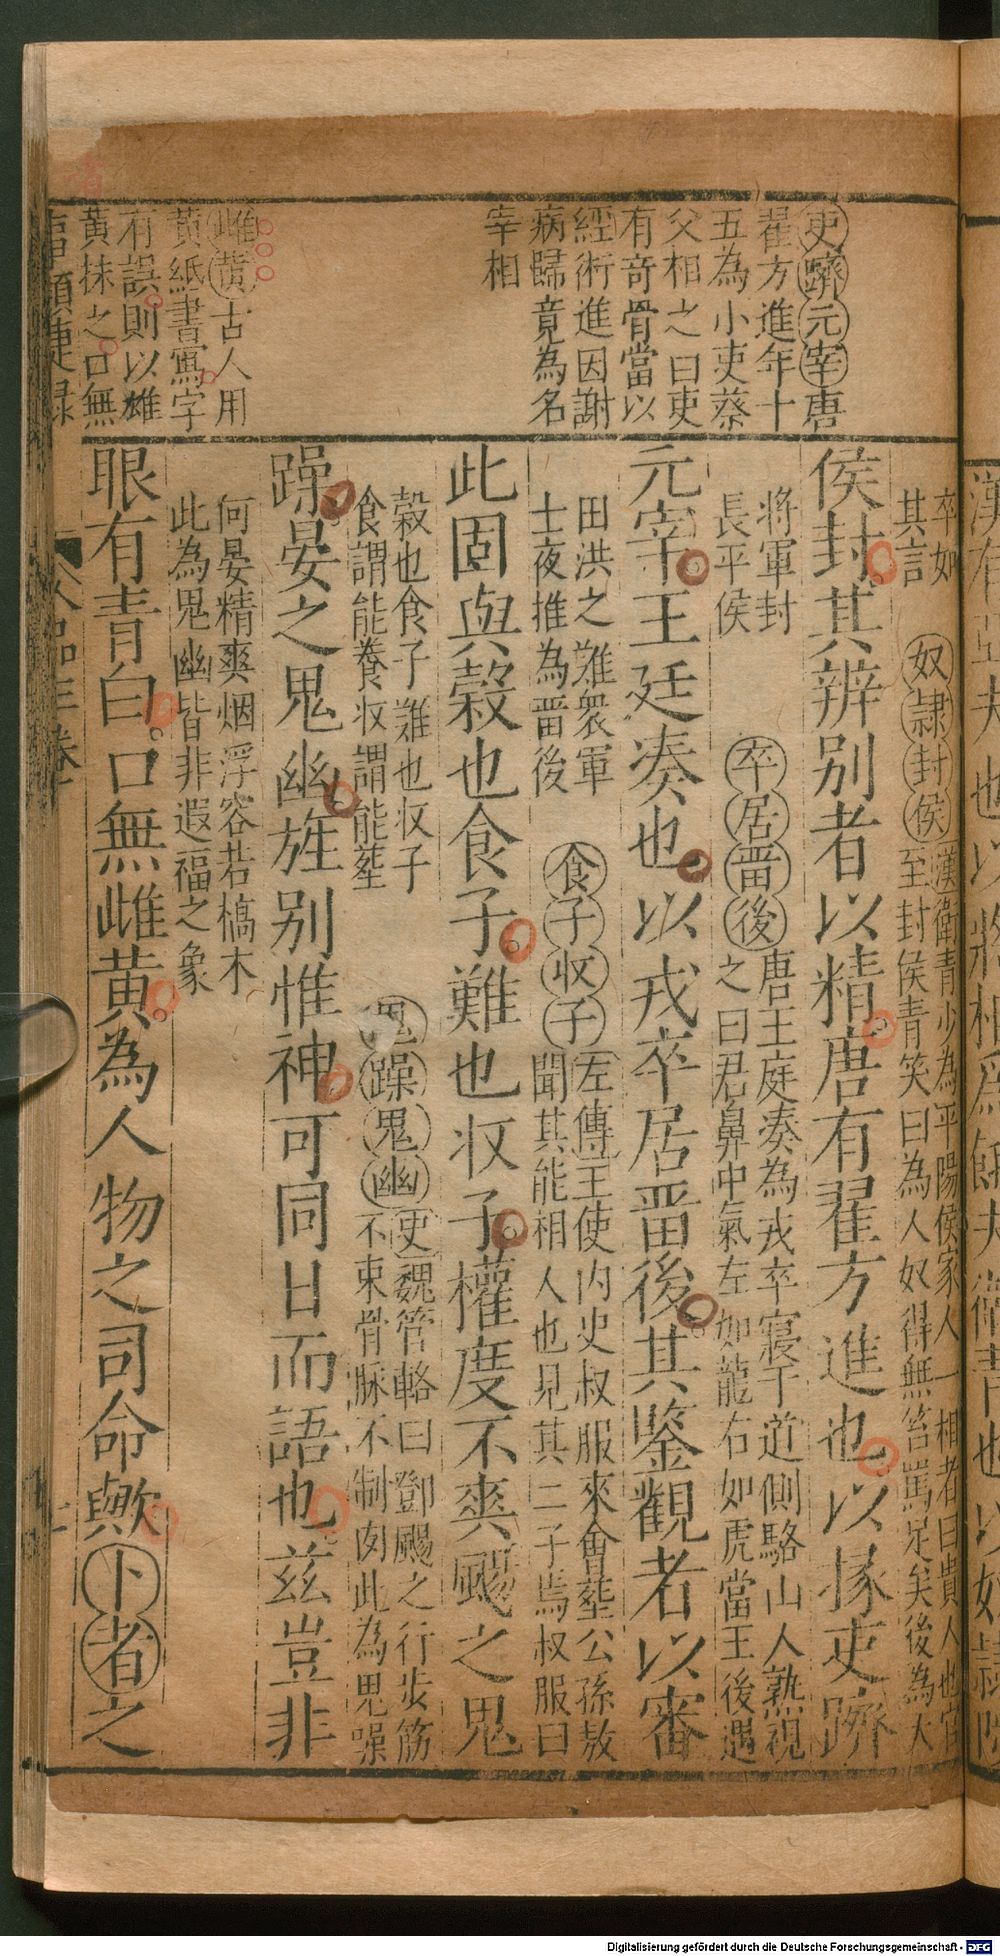 吏躋元宰唐
翟方進年十
五為小吏蔡
父相之曰吏
有奇骨當以
經術進因謝
病歸竟為名
宰相
雌黄古人用
黄紙書寫字
有誤則以雌
黄抹之口無
卒如
其言
奴隷封侯
漢衛青少為平陽侯家人一相者曰貴人也官
至封侯青笑曰為人奴得無笞罵足矣後為大
侯封其辨别者以精唐有翟方進也以掾吏躋
將軍封
長平侯
卒居晋後
唐王庭湊為戎卒寢于道側駱山人熟視
之曰君鼻中氣左如龍右如虎當王後遇
元宰王廷凑也以戎卒居晋後其鑒觀者以審
田洪之難衆軍
士夜推為晋後
食子収子
左傳王使内史叔服來會塟公孫敖
聞其能相人也見其二子焉叔服曰
此固與榖也食子難也収子權度不爽颺之鬼
榖也食子難也収子
食謂能養収謂能塟
鬼躁鬼幽
史魏管輅曰鄧颺之行步筋
不束骨脉不制肉此為鬼噪
躁晏之鬼幽旌别惟神可同日而語也兹豈非
何晏精爽烟浮容若槁木
此為鬼幽皆非遐福之象
眼有青白口無雌黄為人物之司命歟卜者之
Digitalisierung gefördert durch die Deutsche Forschungsgemeinschaft - DFG